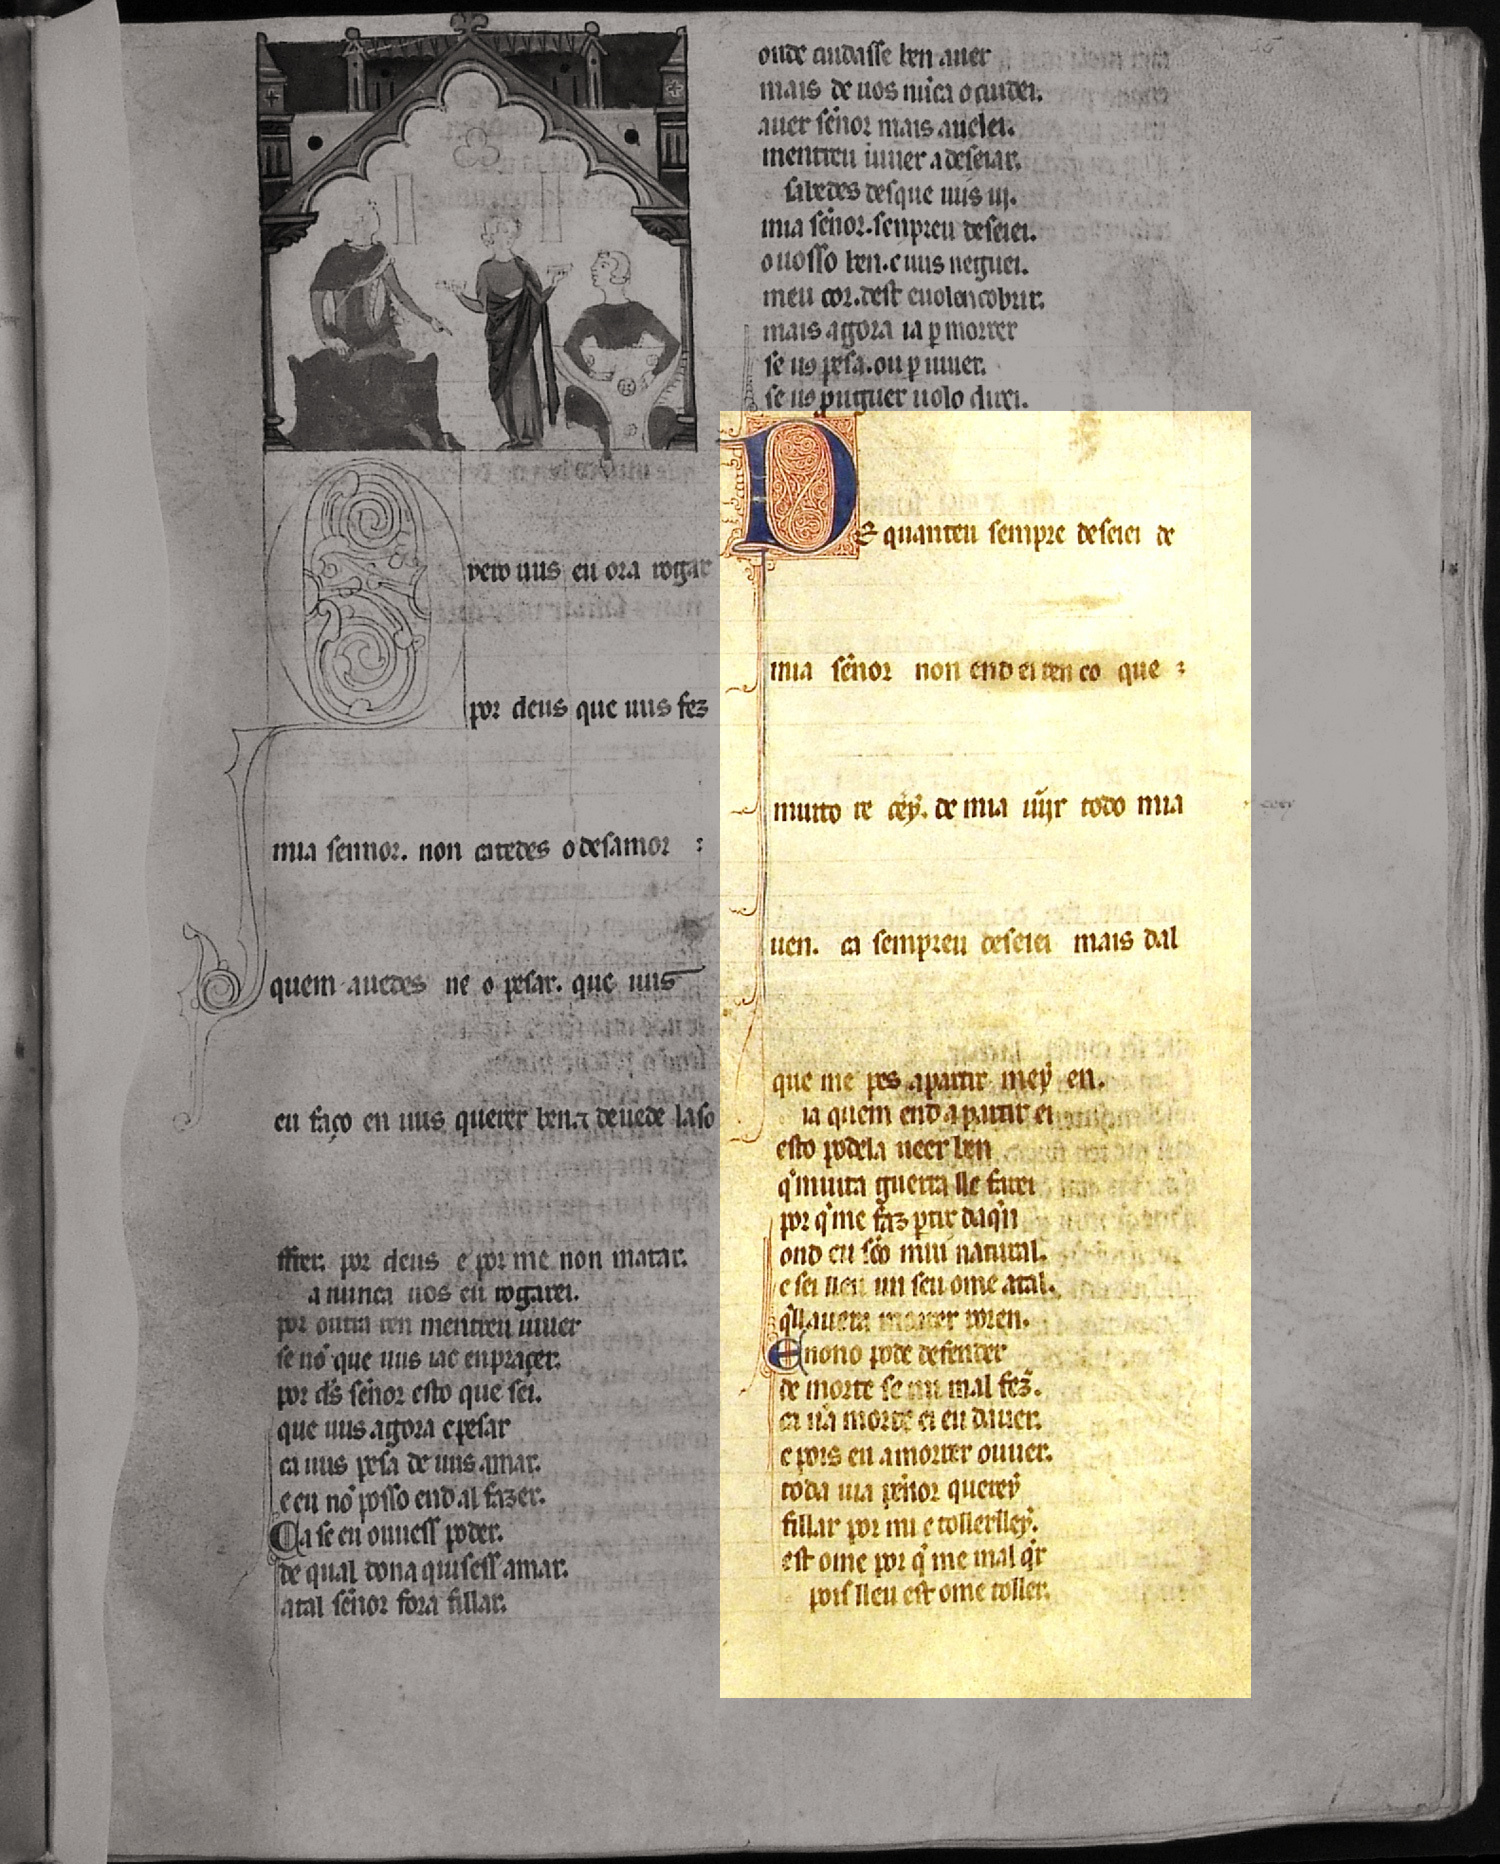 onde cuidasse ben auer
mais de uos nũca o cuidei.
auer señor mais auelei.
mentreu uiuer a deseiar.
sabedes desque uus ui.
mia señor. senpreu deseiei.
o uosso ben. e uus neguei.
meu cor. dest e uolencobrir.
mais agora ia ꝑ morrer
se uꝰ pesa. ou ꝑ uiuer.
se uꝰ puguer uolo direi.
Quero uus eu ora rogar
por deus que uus fez
mia sennor. non catedes o desamor :
quem auedes ne o pesar. que uus
eu faço en uus querer ben. ⁊ deuede la so
ffrer. por deus e por me non matar.
a nunca uos eu rogarei.
por outra ren mentreu uiuer
se nō que uus iac en prazer.
por ds̃ señor esto que sei.
que uus agora e pesar
ca uus pesa de uus amar.
e eu nō posso end al fazer.
Ca se eu ouuess poder.
de qual dona quisess amar.
atal señor fora fillar.
DE quanteu sempre deseiei de
mia señor non end ei ren co que :
muito re cey. de mia uijr todo mia
uen. ca sempreu deseiei mais dal
que me pes a partir mey en.
ia quem end a partir ei
esto podela ueer ben
q̃ muita guerra lle farei
por q̃ me faz ꝑtir daq̃n
ond eu sõo miu natural.
e sei lleu un seu ome atal.
q̃ll auera morrer poren.
E nono pode defender
de morte se mi mal fez.
ca ũa morte ei eu dauer.
e pois eu a morrer ouuer.
toda uia peñor querey
fillar por mi e tollerlley.
est ome por q̃ me mal q̃r
pois lleu est ome toller.